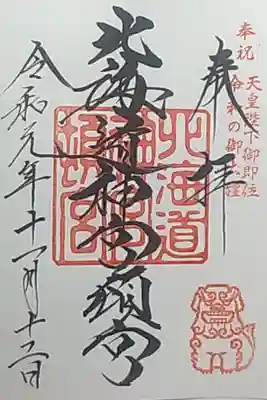 奉祝 天皇陛下御即位
令和の御大礼
奉拝
北海道神宮頓宮
北海道
神宮
頓宮
令和元年十一月十二日